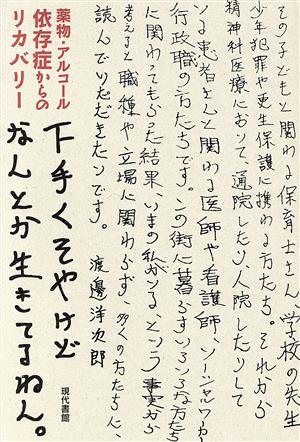 その子どもと関わる保育士さん、学校の先生
少年犯罪や更生保護に携わる方たち。それから
精神科医療において、通院したり入院したりして
いる患者さんと関わる医師や看護師、ソーシャルワーカ
行政職の方たちです。この街に暮らすいろいろな方たち
に関わってもらった結果、いまの私がいる、という事実から
考えると職種や立場に関わらず、多くの方たちに、
読んでいただきたいです。
渡邊洋次郎
下手くそやけど
なんとか生きてるねん。
薬物・アルコール
依存症からの
リカバリー
現代書館